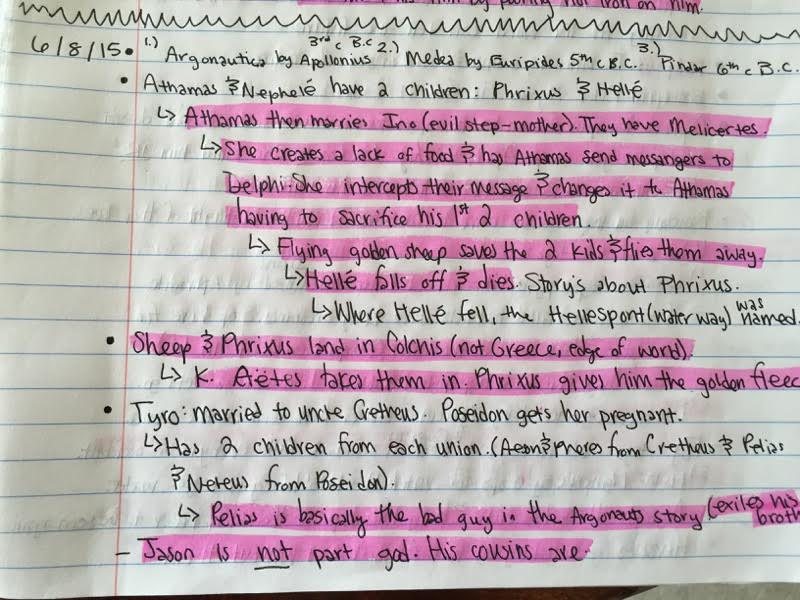 him by pouring hot iron on him.
6/8/15 • 1.) Argonautica by Apollonius 3rd c B.C 2.) Medea by Euripides 5th c B.C. 3.) Pindar 6th c B.C.
• Athamas & Nephelé have 2 children: Phrixus & Hellé
↳ Athamas then marries Ino (evil step-mother). They have Melicertes.
↳ She creates a lack of food & has Athamas send messangers to
Delphi. She intercepts their message & changes it to Athamas
having to sacrifice his 1st 2 children.
↳ Flying golden sheep saves the 2 kids & flies them away.
↳ Hellé falls off & dies. Story's about Phrixus.
↳ Where Hellé fell, the Hellespont (water way) was named.
• Sheep & Phrixus land in Colchis (not Greece, edge of world).
↳ K. Aiëtes takes them in. Phrixus gives him the golden fleec
• Tyro: married to uncle Cretheus. Poseidon gets her pregnant.
↳ Has 2 children from each union. (Aeson & Pheres from Cretheus & Pelias
& Neleus from Poseidon).
↳ Pelias is basically the bad guy in the Argonauts story (exiles his broth
– Jason is not part god. His cousins are.